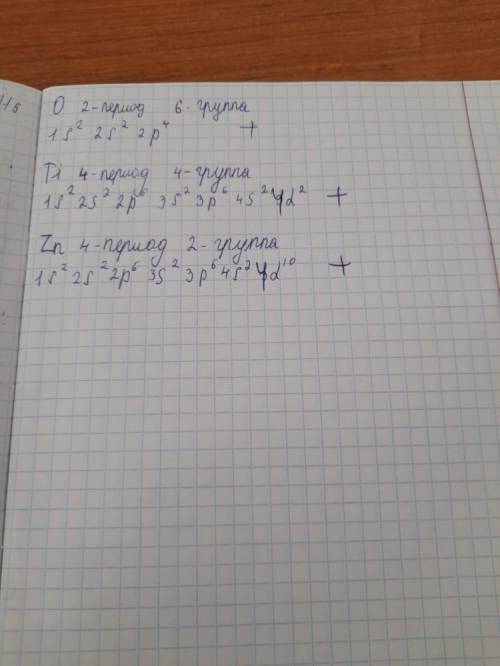 О 2-период 6-группа
1s² 2s² 2p⁴ +
Ti 4-период 4-группа
1s² 2s² 2p⁶ 3s² 3p⁶ 4s² 4d² +
Zn 4-период 2-группа
1s² 2s² 2p⁶ 3s² 3p⁶ 4s² 4d¹⁰ +